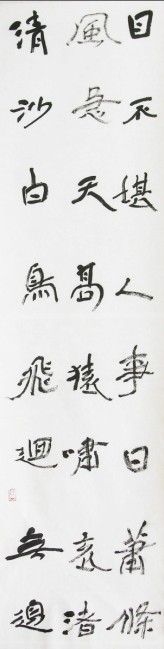 目不堪人事日蕭條
風急天高猿嘯哀渚
清沙白鳥飛迴無邊